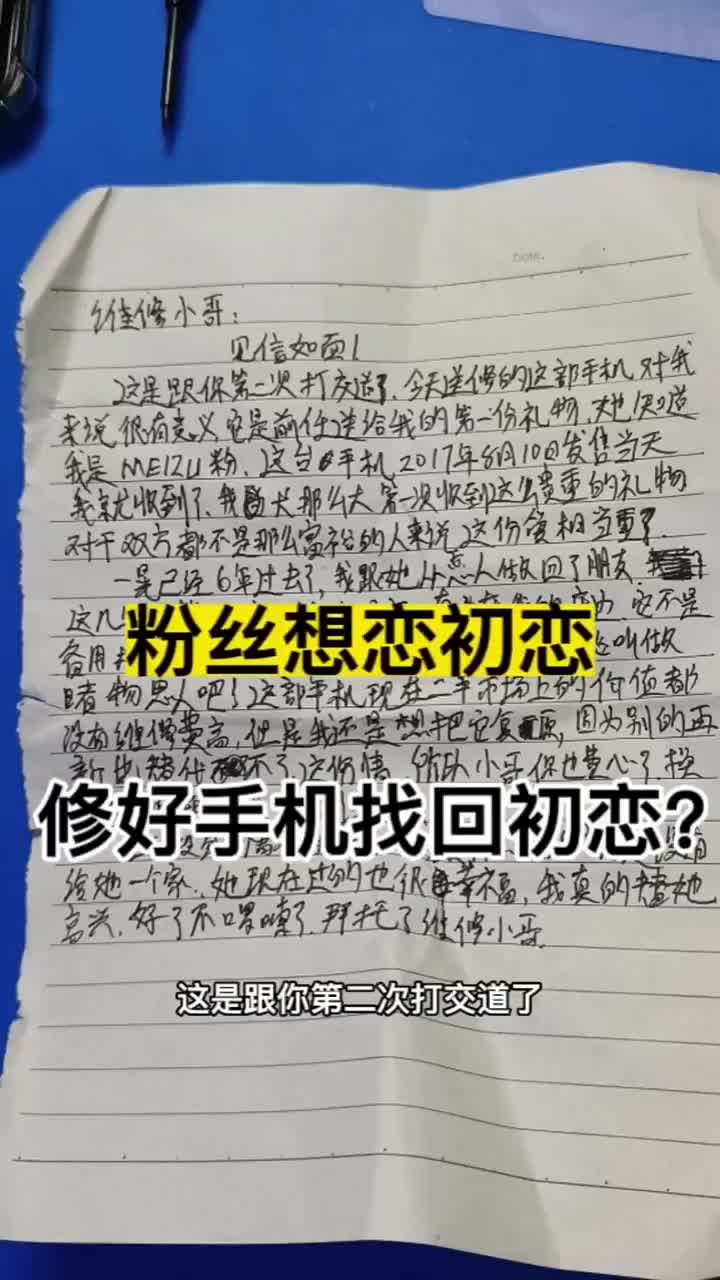 Date.
维修小哥：
见信如面！
这是跟你第二次打交道了，今天送修的这部手机对我
来说很有意义它是前任送给我的第一份礼物，她知道
我是MEIZU粉，这台手机2017年8月10日发售当天
我就收到了，我长那么大第一次收到这么贵重的礼物
对于双方都不是那么富裕的人来说这份情相当重了
一晃已经6年过去了，我跟她从恋人做回了朋友，
这几 它不是
粉丝想恋初恋
备用 叫做
睹物思人吧！这部手机现在二手市场上的价值都
没有维修费高，但是我还是想把它复原，因为别的再
新也替代不了这份情 所以小哥你费心了，换
修好手机找回初恋?
没有
给她一个家，她现在过的也很幸福，我真的替她
高兴，好了不啰嗦了，拜托了维修小哥
这是跟你第二次打交道了